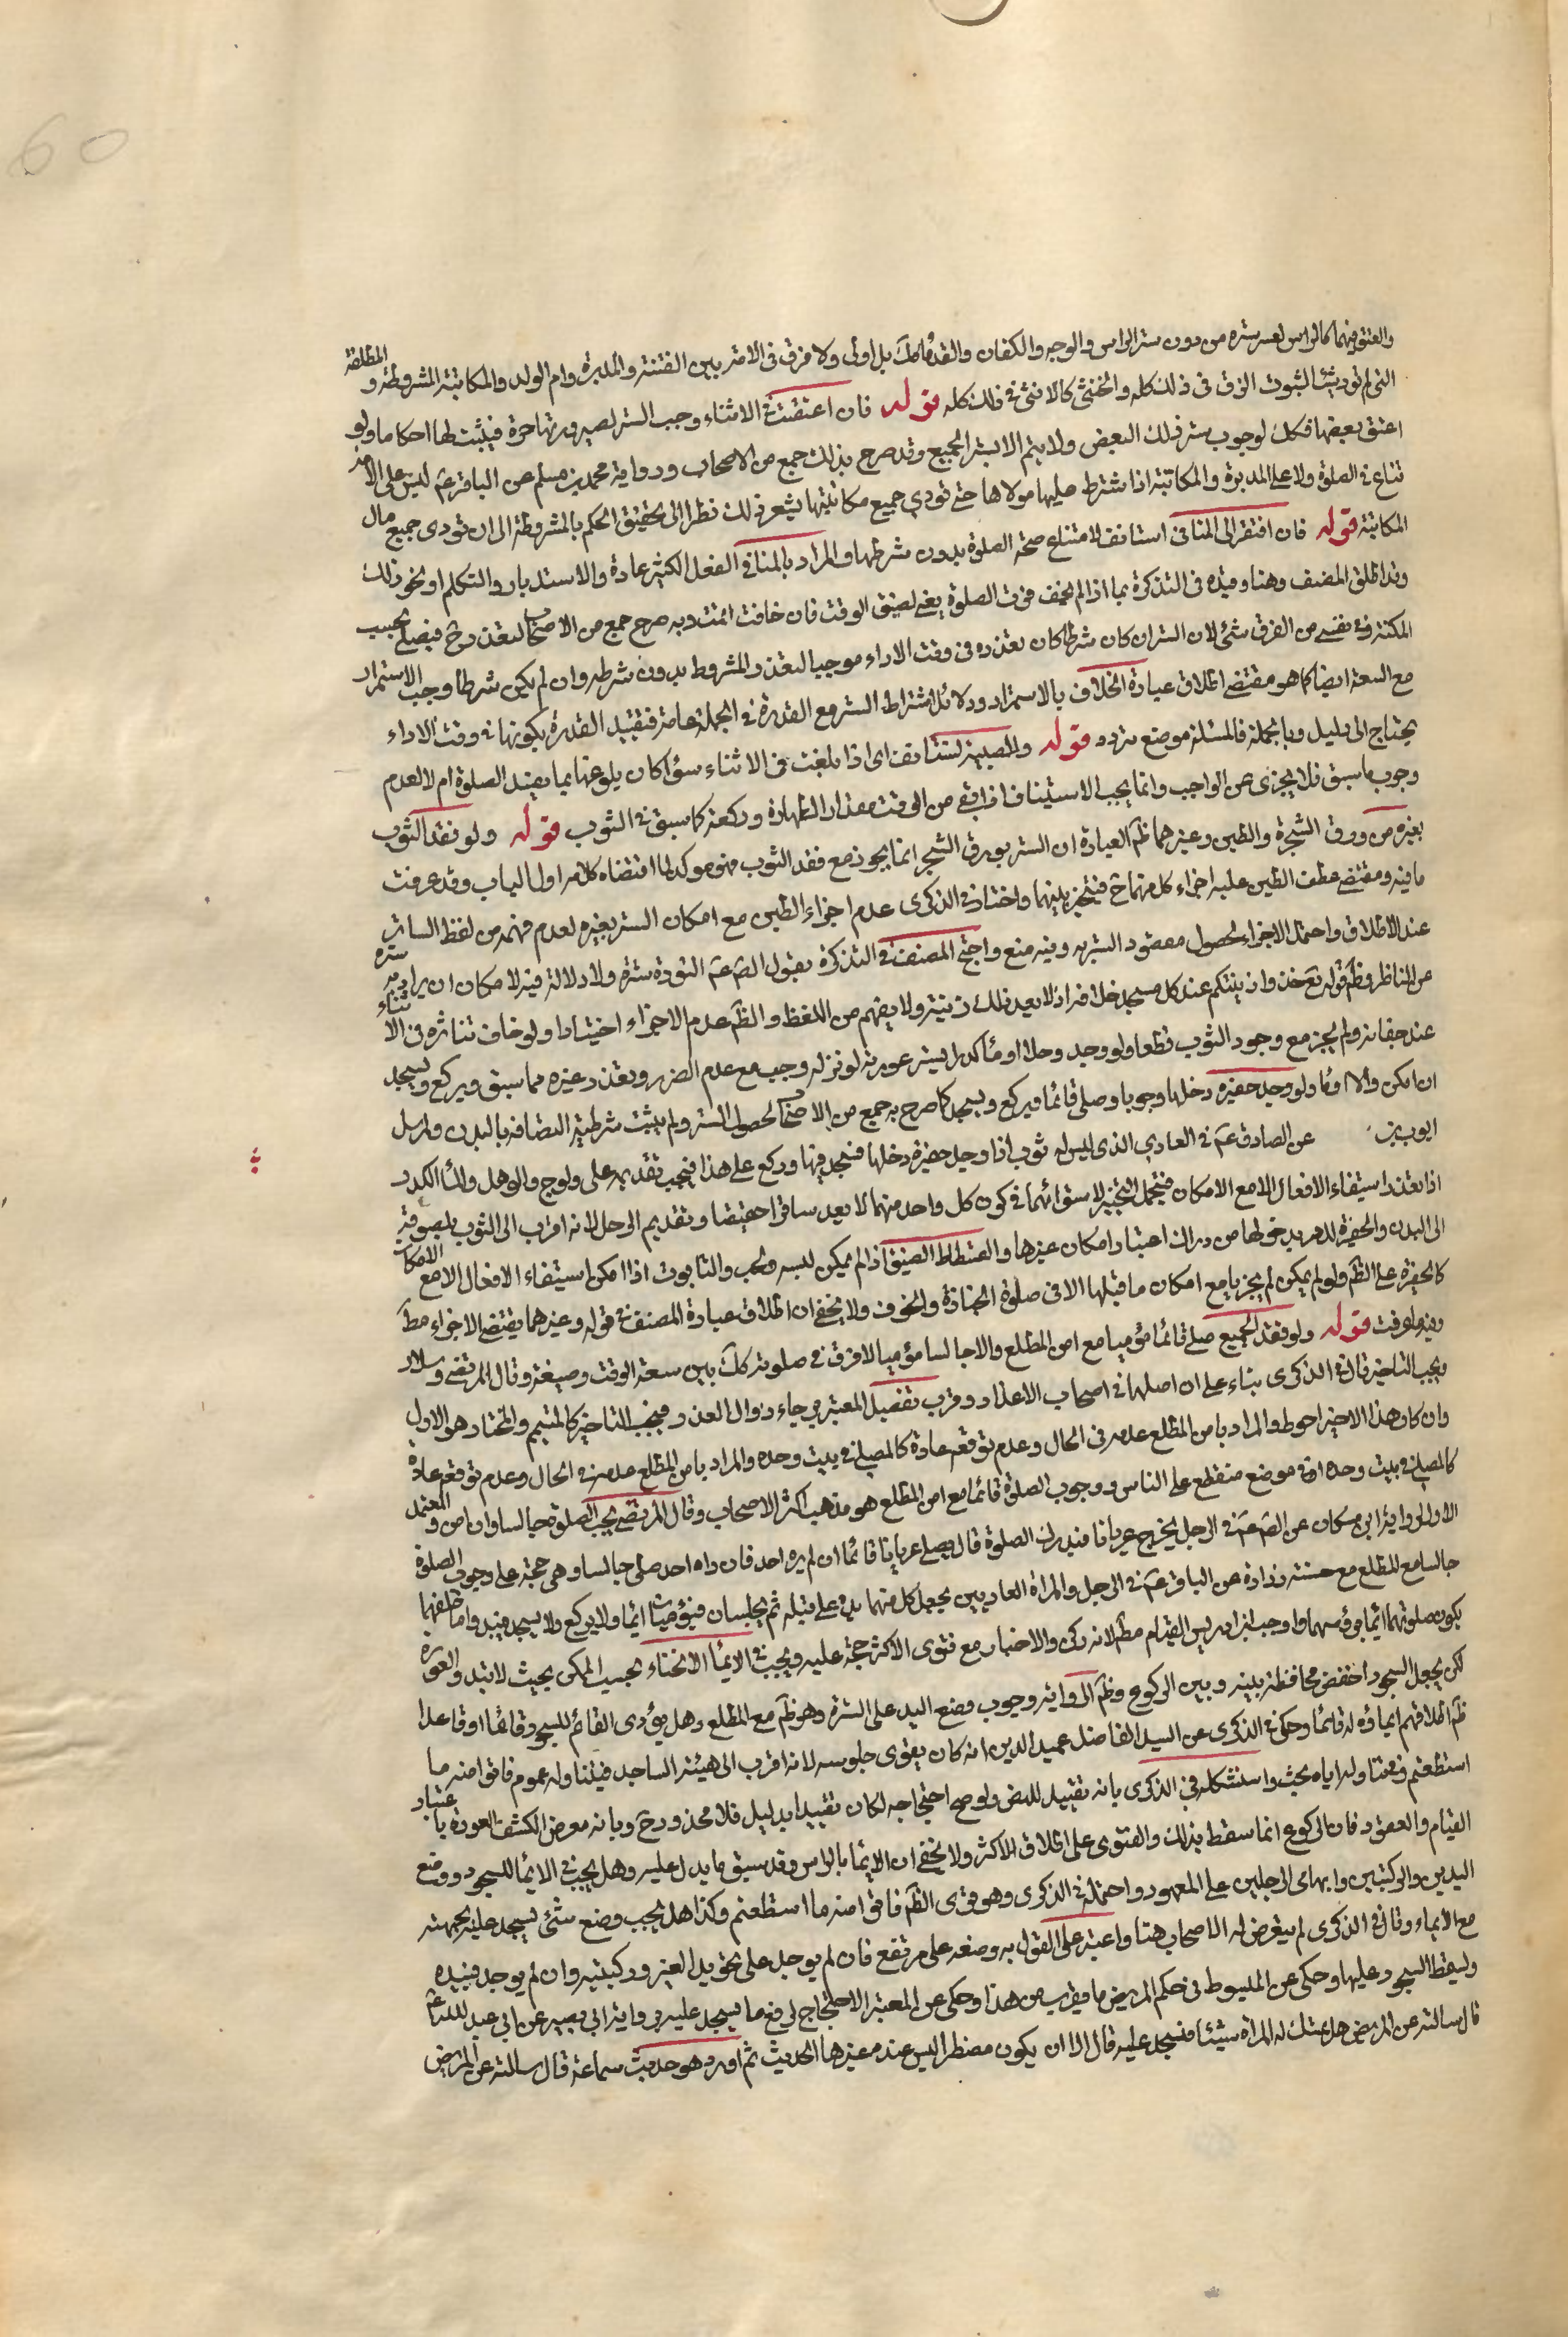 والعنق فيهما كالراس لعسر ستره من دون ستر الراس والوجه والكفان والقدمان كك بل اولى ولا فرق في الامة بين القنة والمدبرة وام الولد والمكاتبة المشروطة والمطلقة
التي لم تود شيئا لثبوت الرق في ذلك كله والخنثى كالانثى في ذلك كله قوله فان اعتقت في الاثناء وجب الستر لصيرورتها حرة فيثبت لها احكامها ولو
اعتق بعضها فكك لوجوب ستر ذلك البعض ولا يتم الا بستر الجميع وقد صرح بذلك جمع من الاصحاب ورواية محمد بن مسلم عن الباقر ع ليس على الامة
قناع في الصلوة ولا على المدبرة والمكاتبة اذا اشترط عليها مولاها حتى تودي جميع مكاتبتها يشعر بذلك نظرا الى تحقيق الحكم بالمشروطة الى ان تودى جميع مال
المكاتبة قوله فان افتقر الى المنافى استانف لامتناع صحة الصلوة بدون شرطها والمراد بالمنافى الفعل الكثير عادة والاستدبار والتكلم او نحو ذلك
وقد اطلق المصنف هنا وقيده في التذكرة بما اذا لم تخف فوت الصلوة يعني لضيق الوقت فان خافت اتمت وبه صرح جمع من الاصحاب لتعذره ح فيصلى بحسب
المكنة وفي نفسي من الفرق شئ لان الستر ان كان شرطا كان تعذره في وقت الاداء موجبا لتعذر المشروط بدون شرطه وان لم يكن شرطا وجب الاستمرار
مع السعة ايضا كما هو مقتضى اطلاق عبارة الخلاف بالاستمرار ودلائل اشتراط الستر مع القدرة في الجملة عامة فتقييد القدرة بكونها في وقت الاداء
يحتاج الى دليل وبالجملة فالمسئلة موضع تردد قوله والصبية تستانف اى اذا بلغت في الاثناء سواء كان بلوغها بما يفسد الصلوة ام لا لعدم
وجوب ما سبق فلا يجزى عن الواجب وانما يجب الاستيناف اذا بقى من الوقت مقدار الطهارة وركعة كما سبق في الثوب قوله ولو فقد الثوب
بغيره من ورق الشجرة والطين وغيرهما ظ العبارة ان الستر بورق الشجر انما يجوز مع فقد الثوب فهو موكد لما اقتضاه كلامه اول الباب وقد عرفت
ما فيه ومقتضى عطف الطين عليه اجزاء كل منهما ح فيتخير بينهما واختار في الذكرى عدم اجزاء الطين مع امكان الستر بغيره لعدم فهمه من لفظ الساتر
عند الاطلاق واحتمل الاجزاء لحصول مقصود الستر به وفيه منع واحتج المصنف في التذكرة بقول الص ع النورة سترة ولا دلالة فيه لامكان ان يراد به ستره
عن الناظر وظ قوله تع خذوا زينتكم عند كل مسجد خلافه اذ لا يعد ذلك زينة ولا يفهم من اللفظ والظ عدم الاجزاء اختيارا ولو خاف تناثره في الاثناء
عند جفافه ولم يجز مع وجود الثوب قطعا ولو وجد وحلا او ماء كدرا يستر عورته لو نزله وجب مع عدم الضرر وتعذر غيره مما سبق ويركع ويسجد
ان امكن والا اوما ولو وجد حفيرة دخلها وجوبا وصلى قائما ويركع ويسجد كما صرح به جمع من الاصحاب لحصول الستر ولم يثبت شرطية التصاقه بالبدن ولمرسل
ايوب بن عن الصادق ع في العارى الذى ليس له ثوب اذا وجد حفيرة دخلها فسجد فيها وركع على هذا فيجب تقديمه على ولوج والوحل والماء الكدر
اذا تعذر استيفاء الافعال الا مع الامكان فيحتمل التخيير لاستوائهما في كون كل واحد منهما لا يعد ساترا حقيقيا وتقديم الوحل لانه اقرب الى الثوب للصوقه
الى البدن والحفيرة للامر بدخولها من دون اعتبار امكان غيرها والفسطاط الضيق اذا لم يمكن لبسه والحب والتابوت اذا امكن استيفاء الافعال الا مع الامكان
كالحفيرة على الظ ولو لم يمكن لم يجز بها مع امكان ما قبلها الا في صلوة الجنازة والخوف ولا يخفى ان اطلاق عبارة المصنف في قوله وغيرهما يقتضى الاجزاء مط
وفيه ما عرفت قوله ولو فقد الجميع صلى قائما موميا مع امن المطلع والا جالسا موميا لا فرق في صلوته كك بين سعة الوقت وضيقه وقال المرتضى وسلار
ويجب التاخير قال في الذكرى بناء على ان اصلها في اصحاب الاعذار وقرب تفصيل المعتبر برجاء زوال العذر فيجب التاخير كالمتيمم والمختار هو الاول
وان كان هذا الاخير احوط والمراد بامن المطلع عدمه في الحال وعدم توقعه عادة كالمصلى في بيت وحده والمراد بامن المطلع عدمه في الحال وعدم توقعه عادة
كالمصلى في بيت وحده او في موضع منقطع على الناس ووجوب الصلوة قائما مع امن المطلع هو مذهب اكثر الاصحاب وقال المرتضى يجب الصلوة جالسا وان امن والمعتمد
الاول لرواية ابن مسكان عن الص ع في الرجل يخرج عريانا فيدرك الصلوة قال يصلى عريانا قائما ان لم يره احد فان راه احد صلى جالسا وهى حجة على وجوب الصلوة
جالسا مع المطلع مع حسنة زرارة عن الباقر ع في الرجل والمراة العاريين يجعل كل منهما يده على قبله ثم يجلسان فيومئان ايماء ولا يركع ولا يسجد فيبدو ما خلفهما
يكون صلوتهما ايماء بروسهما واوجب ابن ادريس القيام مط لانه ركن والاخبار مع فتوى الاكثر حجة عليه ويجب في الايماء الانحناء بحسب الممكن بحيث لا تبدو العورة
لكن يجعل السجود اخفض محافظة بينه وبين الركوع وظ الرواية وجوب وضع اليد على السترة وهو ظ مع المطلع وهل يؤدى القائم للسجود قائما او قاعدا
ظ اطلاقهم ايماؤه له قائما وحكى في الذكرى عن السيد الفاضل عميد الدين انه كان يقوى جلوسه لانه اقرب الى هيئة الساجد فيتناوله عموم فاتوا منه ما
استطعتم وفي تناوله اياه بحث واستشكله في الذكرى بانه تقييد للنص ولو صح احتجاجه لكان تقييدا بدليل فلا محذور ح وبانه معرض لكشف العورة باعتبار
القيام والقعود فان الركوع انما سقط بذلك والفتوى على اطلاق الاكثر ولا يخفى ان الايماء بالراس وقد سبق ما يدل عليه وهل يجب في الايماء للسجود ووضع
اليدين والركبتين وابهامى الرجلين على المعهود واحتمله في الذكرى وهو قوى الظ فاتوا منه ما استطعتم وكذا هل يجب وضع شئ يسجد عليه بجبهته
مع الايماء وقال في الذكرى لم يتعرض له الاصحاب هنا واعتبر على القول به وضعه على مرتفع فان لم يوجد على تحويل الغير وركبتيه وان لم يوجد فبيده
ولسقط السجود عليها وحكى عن المبسوط في حكم المريض ما يقرب من هذا وحكى عن المعتبر الاحتجاج لرفع ما يسجد عليه برواية ابى بصير عن ابى عبد الله ع
قال سالته عن المريض هل تمسك له المراة شيئا فيسجد عليه قال لا الا ان يكون مضطرا ليس عنده غيرها الحديث ثم اورد وهو حديث سماعة قال سالته عن المريض